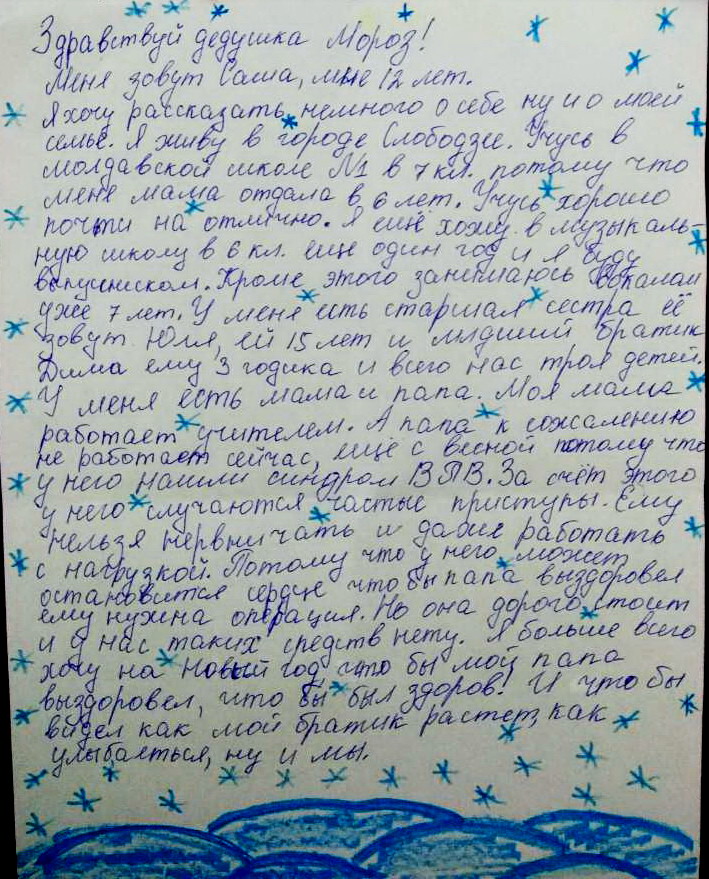 Здравствуй дедушка Мороз!
Меня зовут Саша, мне 12 лет.
Я хочу рассказать немного о себе ну и о моей
семье. Я живу в городе Слободзее. Учусь в
молдавской школе №1 в 7 кл. потому что
меня мама отдала в 6 лет. Учусь хорошо
почти на отлично. Я ещё хожу в музыкаль-
ную школу в 6 кл. еще один год и я буду
выпускником. Кроме этого занимаюсь вокалом
уже 7 лет. У меня есть старшая сестра её
зовут Юля, ей 15 лет и младший братик
Дима ему 3 годика и всего нас троя детей.
У меня есть мама и папа. Моя мама
работает учителем. А папа к сожалению
не работает сейчас, ещё с весной потому что
у него нашли синдром ВПВ. За счёт этого
у него случаются частые приступы. Ему
нельзя нервничать и даже работать
с нагрузкой. Потому что у него может
остановится сердце что бы папа выздоровел
ему нужна операция. Но она дорого стоит
и у нас таких средств нету. Я больше всего
хочу на Новый год что бы мой папа
выздоровел, что бы был здоров! И что бы
видел как мой братик растет, как
улыбается, ну и мы.